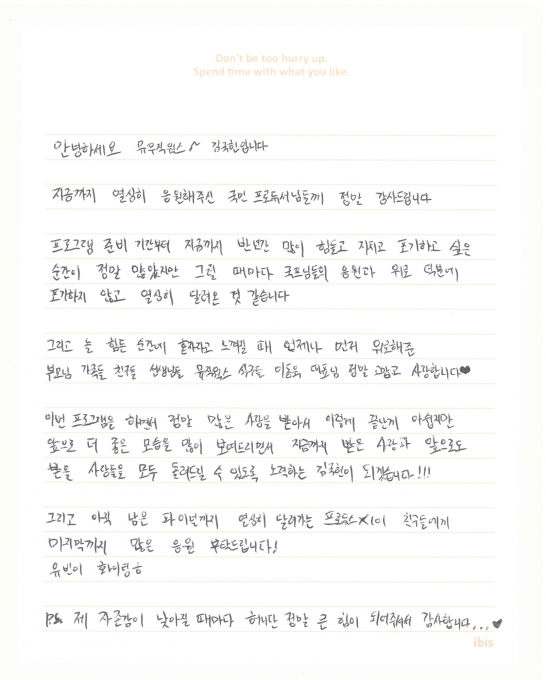 Don't be too hurry up.
Spend time with what you like.
안녕하세요 뮤직웍스~ 김국헌입니다
지금까지 열심히 응원해주신 국민 프로듀서님들께 정말 감사드립니다
프로그램 준비 기간부터 지금까지 반년간 많이 힘들고 지치고 포기하고 싶은
순간이 정말 많았지만 그럴 때마다 국프님들의 응원과 위로 덕분에
포기하지 않고 열심히 달려온 것 같습니다
그리고 늘 힘든 순간에 혼자라고 느껴질 때 언제나 먼저 위로해준
부모님 가족들 친구들 선생님들 뮤직웍스 식구들 대표님 정말 고맙고 사랑합니다♥
이번 프로그램을 하면서 정말 많은 사랑을 받아서 이렇게 끝난게 아쉽지만
앞으로 더 좋은 모습을 많이 보여드리면서 지금까지 받은 사랑과 앞으로도
받을 사랑들을 모두 돌려드릴 수 있도록 노력하는 김국헌이 되겠습니다!!!
그리고 아직 남은 파이널까지 열심히 달려가는 프로듀스X101 친구들에게
마지막까지 많은 응원 부탁드립니다!
유빈이 화이팅ㅎ
P.S. 제 자존감이 낮아질 때마다 허니단 정말 큰 힘이 되어주셔서 감사합니다...♥
ibis